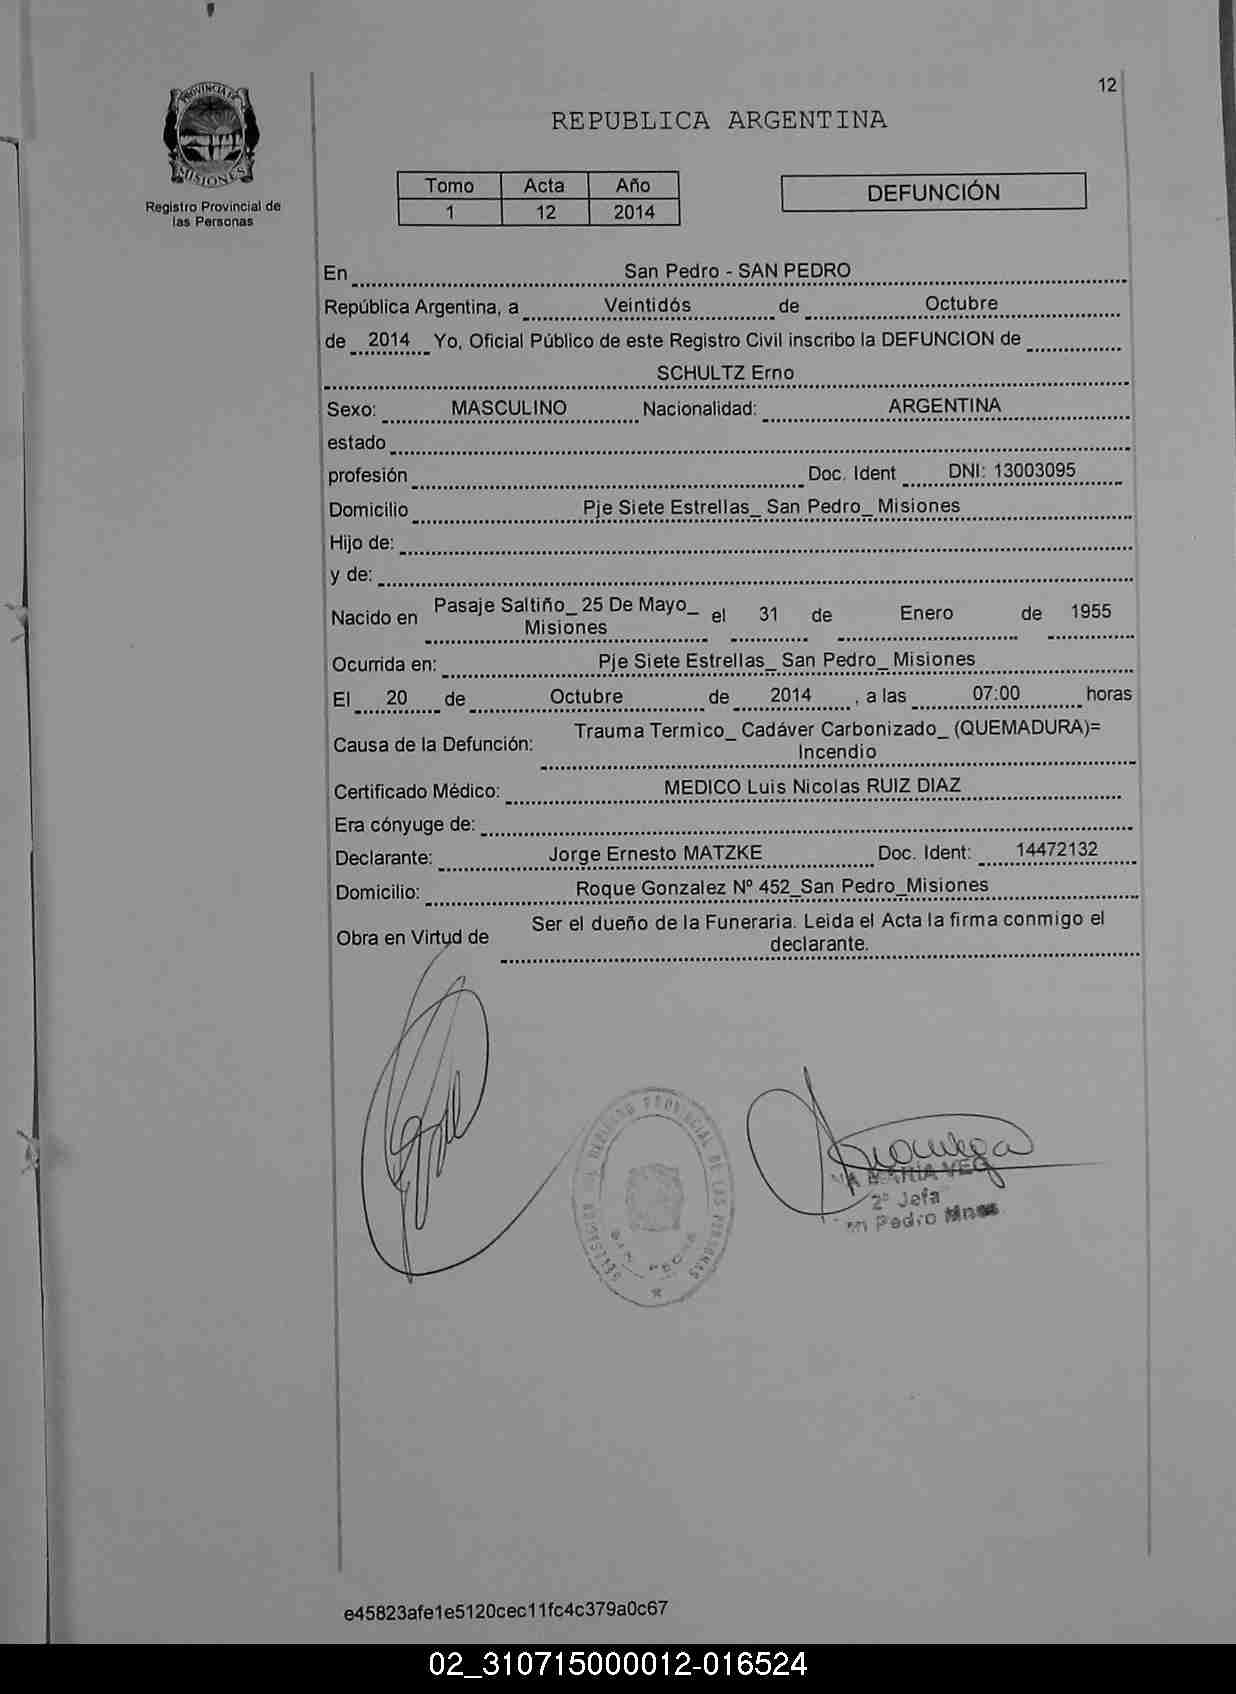 12
PROVINCIA DE
MISIONES
Registro Provincial de
las Personas
REPUBLICA ARGENTINA
Tomo Acta Año
1 12 2014
DEFUNCIÓN
En San Pedro - SAN PEDRO
República Argentina, a Veintidós de Octubre
de 2014 Yo, Oficial Público de este Registro Civil inscribo la DEFUNCION de
SCHULTZ Erno
Sexo: MASCULINO Nacionalidad: ARGENTINA
estado
profesión Doc. Ident DNI: 13003095
Domicilio Pje Siete Estrellas_ San Pedro_ Misiones
Hijo de:
y de:
Nacido en Pasaje Saltiño_ 25 De Mayo_ el 31 de Enero de 1955
Misiones
Ocurrida en: Pje Siete Estrellas_ San Pedro_ Misiones
El 20 de Octubre de 2014 , a las 07:00 horas
Causa de la Defunción: Trauma Termico_ Cadáver Carbonizado_ (QUEMADURA)=
Incendio
Certificado Médico: MEDICO Luis Nicolas RUIZ DIAZ
Era cónyuge de:
Declarante: Jorge Ernesto MATZKE Doc. Ident: 14472132
Domicilio: Roque Gonzalez Nº 452_San Pedro_Misiones
Obra en Virtud de Ser el dueño de la Funeraria. Leida el Acta la firma conmigo el
declarante.
PROVINCIAL DE LAS PERSONAS
SAN PEDRO
MARIA VEG
2º Jefa
Pedro Mnes
e45823afe1e5120cec11fc4c379a0c67
02_310715000012-016524